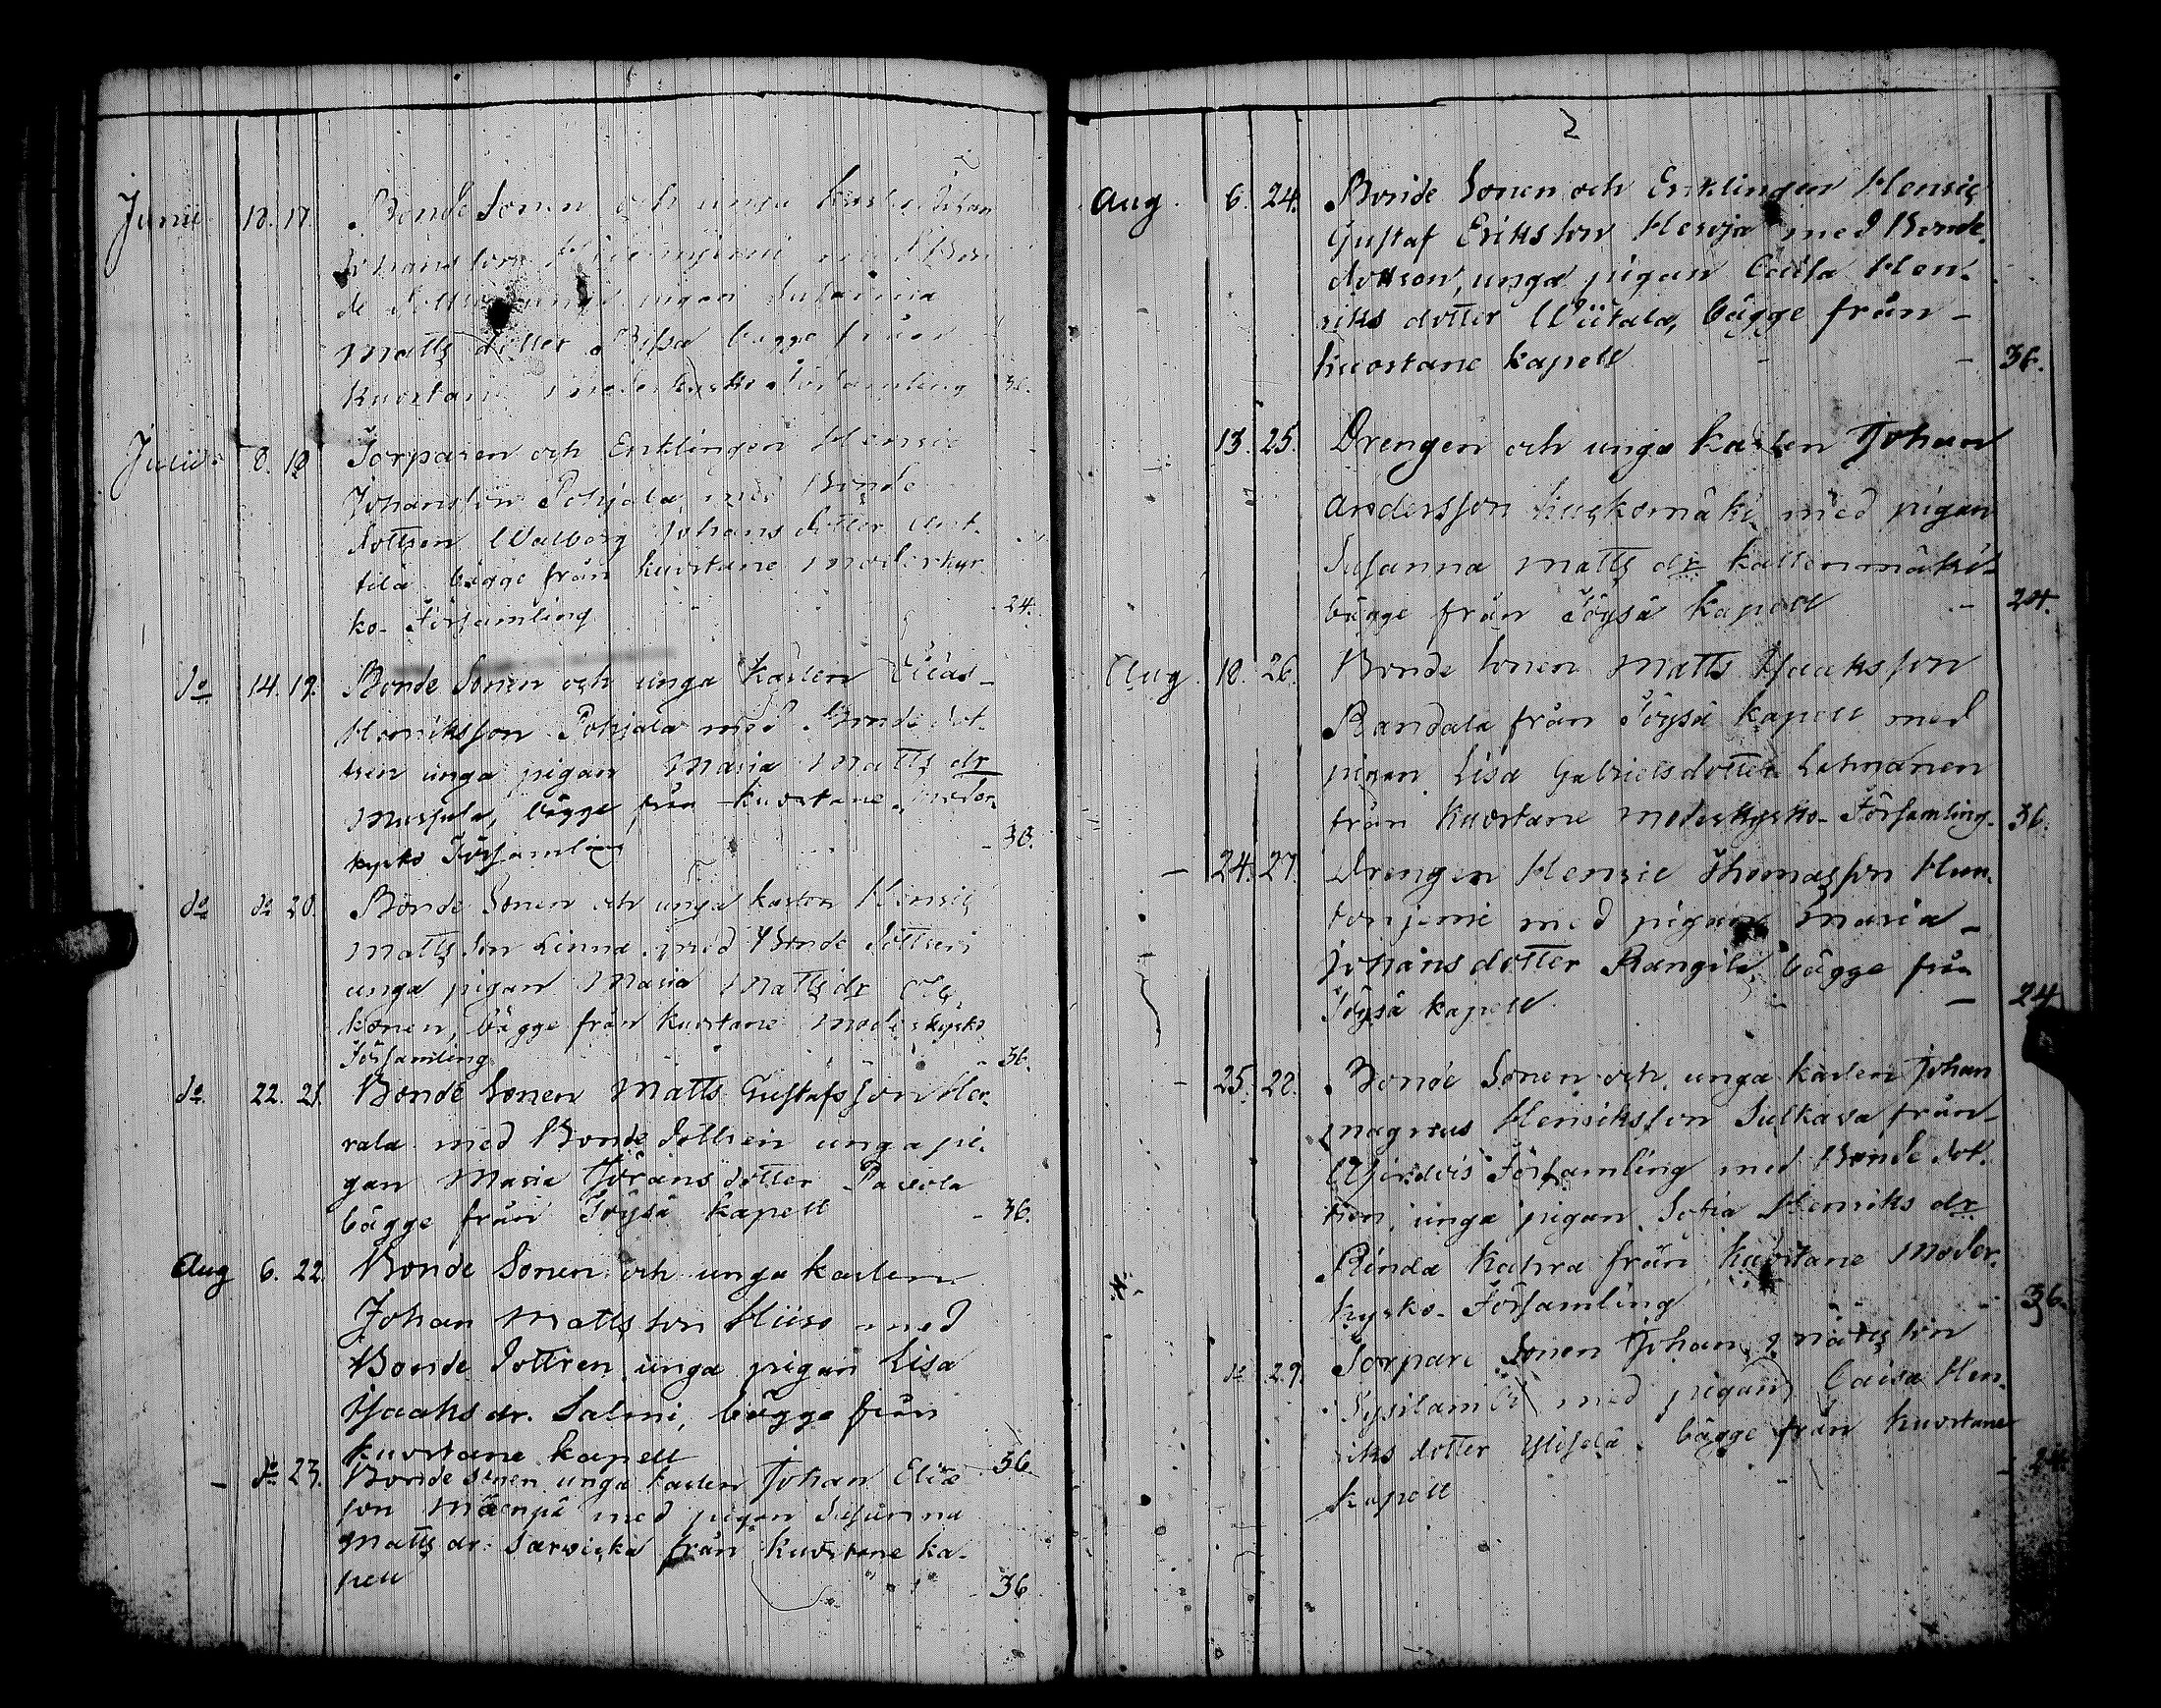 Junii 18. 17. Bonde Sonen och unga karlen Johan
Johansson med Bon
de Dottren unga pigan Susanna
Matts dotter bägge från
Kuortane Moderkyrko Församling 36.
Julii 8. 18 Torparen och Enklingen Henric
Johansson Pohjala med Bonde
dottren Walborg Johans dotter Ant-
tila bägge från Kuortane Moderkyr
ko- Församling 24.
do 14. 19. Bonde Sonen och unga karlen Elias
Henriksson Pohjala med Bonde dot-
tren unga pigan Maria Matts dr
bägge från Kuortane Moder
kyrko Församling 30.
do do 20. Bonde Sonen och unga karlen Henric
Matts son Linna med Bonde dottren
unga pigan Maria Matts dr
konen, bägge från Kuortane Moderkyrko
Församling 36.
do 22. 21. Bonde Sonen Matts Gustafsson Her-
rala med Bonde dottren unga pi-
gan Maria Göransdotter Pavola
bägge från Töysä kapell 36.
Aug 6. 22. Bonde Sonen och unga karlen
Johan Mattsson Hiiro med
Bonde dottren unga pigan Lisa
Isaaks dr. Salmi, bägge från
Kuortane Kapell 36.
- do 23. Bonde sonen unga karlen Johan Elias
son Mäenpä med pigan Susanna
Matts dr. Sarvicka från Kuortane ka-
pell 36
2
Aug. 6. 24. Bonde Sonen och Enklingen Henric
Gustaf Eriksson Heroja med Bonde
dottren, unga pigan Caisa Hen-
riks dotter Wiitala, bägge från -
Kuortane Kapell - - 36.
13. 25. Drengen och unga karlen Johan
Andersson Kuckomäki med pigan
Susanna Matts dr Kattenmäki
bägge från Töysä Kapell - 24.
Aug. 18. 26. Bonde Sonen Matts Isaaksson
Randala från Töysä Kapell med
pigan Lisa Gabrielsdotter
från Kuortane Moderkyrko Församling. 36.
- 24. 27. Drengen Henric Thomasson Hun-
med pigan Maria -
Johansdotter Rangila bägge från
Töysä Kapell - - 24
- 25. 28. Bonde Sonen och unga karlen Johan
Magnus Henriksson Sulkava från
Församling med Bonde dot-
tren, unga pigan Sofia Henriks dr
Rinda Katvra från Kuortane Moder-
kyrko- Församling - 36.
do 29. Torpare Sonen Johan Mattsson
med pigan Caisa Hen-
riks dotter bägge från Kuortane
Kapell - - 24.